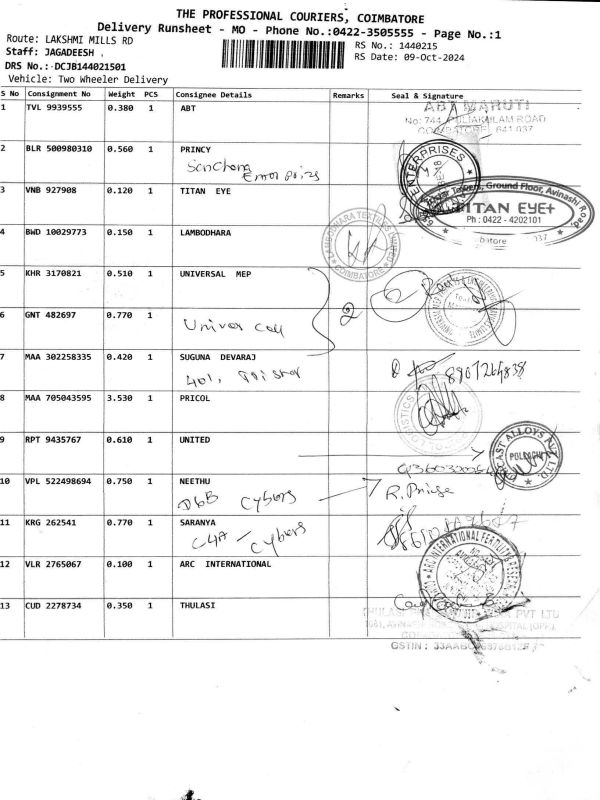 THE PROFESSIONAL COURIERS, COIMBATORE
Delivery Runsheet - MO - Phone No.:0422-3505555 - Page No.:1
Route: LAKSHMI MILLS RD
RS No.: 1440215
Staff: JAGADEESH .
RS Date: 09-Oct-2024
DRS No.: DCJB144021501
Vehicle: Two Wheeler Delivery
S No Consignment No Weight PCS Consignee Details Remarks Seal & Signature
1 TVL 9939555 0.380 1 ABT
ABT MARUTI
No: 744, PULIAKULAM ROAD
COIMBATORE - 641 037
2 BLR 500980310 0.560 1 PRINCY
ENTERPRISES
3 VNB 927908 0.120 1 TITAN EYE
Towers, Ground Floor, Avinashi Road,
TITAN EYE+
Ph : 0422 - 4202101
4 BWD 10029773 0.150 1 LAMBODHARA
LAMBODHARA TEXTILES LIMITED
COIMBATORE
5 KHR 3170821 0.510 1 UNIVERSAL MEP
6 GNT 482697 0.770 1
2
7 MAA 302258335 0.420 1 SUGUNA DEVARAJ
401,
8 MAA 705043595 3.530 1 PRICOL
9 RPT 9435767 0.610 1 UNITED
CAST ALLOYS PVT. LTD.
POLLACHI
10 VPL 522498694 0.750 1 NEETHU
D6B Cybers
11 KRG 262541 0.770 1 SARANYA
C4A - Cybers
12 VLR 2765067 0.100 1 ARC INTERNATIONAL
ARC INTERNATIONAL FERTILITY & RESEARCH
13 CUD 2278734 0.350 1 THULASI
PVT LTD
GSTIN : 33AABC